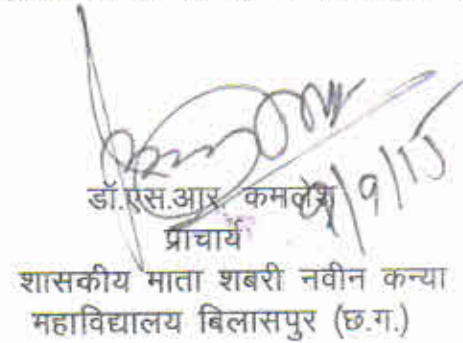 डॉ.एस.आर. कमलेश
/9/15
प्राचार्य
शासकीय माता शबरी नवीन कन्या
महाविद्यालय बिलासपुर (छ.ग.)